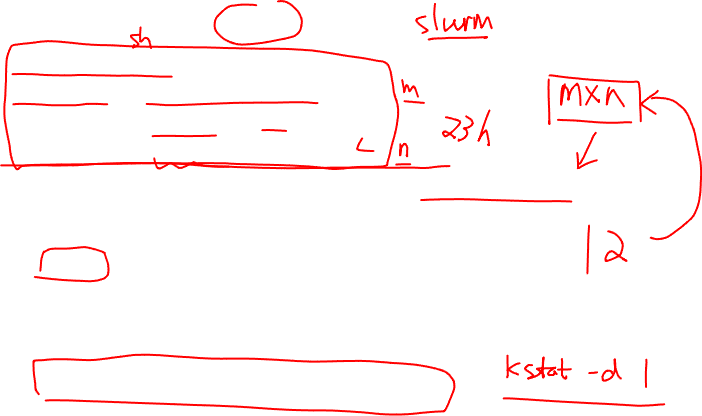 slurm
sh
m
mxn
23h
n
12
kstat -d 1